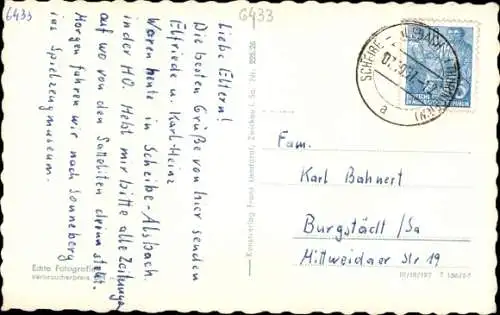 6433
6433
Liebe Eltern!
Die besten Grüße von hier senden
Elfriede u. Karl-Heinz
Waren heute in Scheibe-Alsbach
in der HO. Hebt mir bitte alle Zeitungen
auf wo von den Satelliten drinn steht.
Morgen fahren wir nach Sonneberg
ins Spielzeugmuseum.
Echte Fotografie
Verbraucherpreis
Kunstverlag Franz Zwickau i. Sa. Nr.
SCHEIBE-ALSBACH
a
Fam.
Karl Bahnert
Burgstädt/Sa
Mittweidaer Str 19
III/18/197